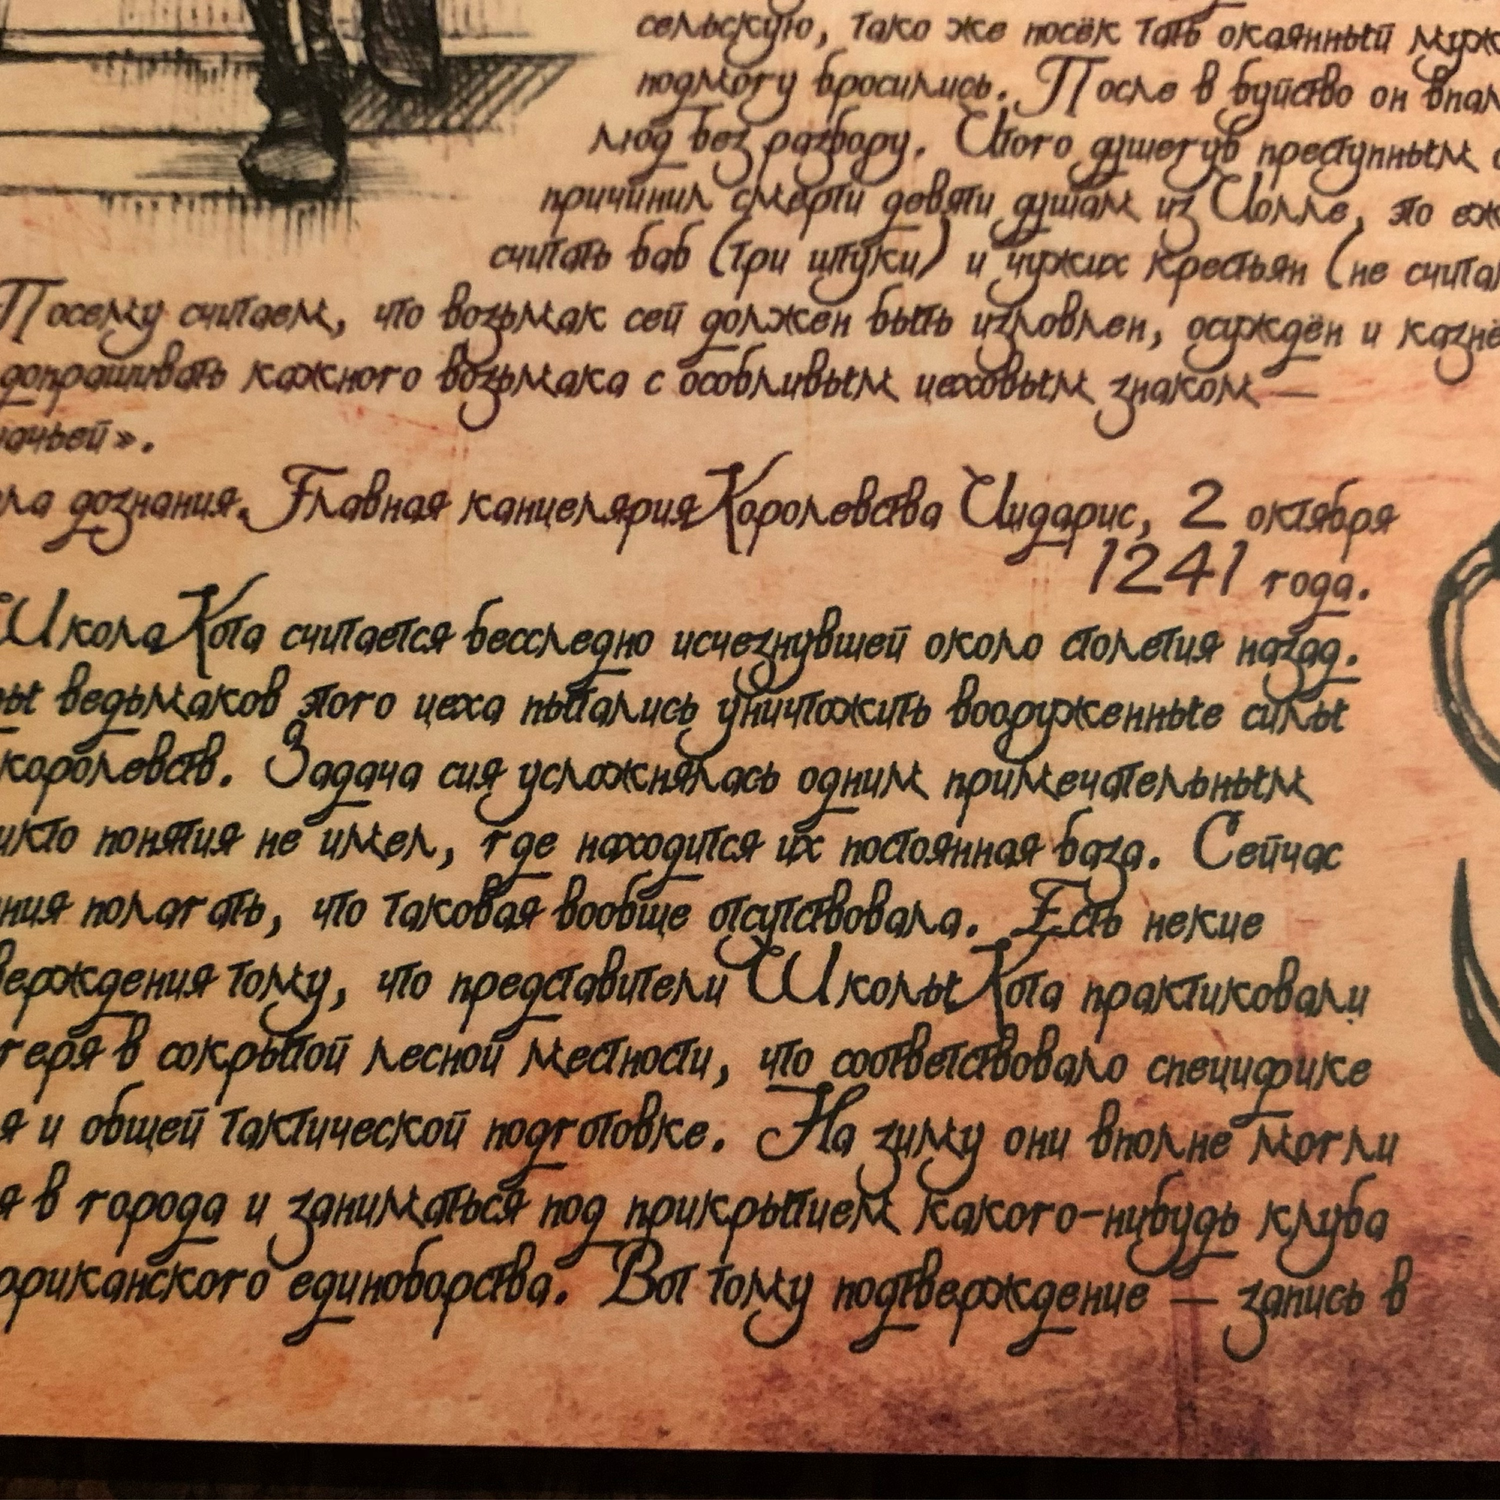 сельскую, тако же посёк тать окаянный муж
подмогу бросились. После в буйство он впал
люд без разбору. Итого душегуб преступным
причинил смерти девяти душам из Иолле, это еж
считать баб (три штуки) и чужих крестьян (не считая
Посему считаем, что возьмак сей должен быть изловлен, осуждён и казнё
допрашивать кажного возьмака с особливым цеховым знаком —
ачьей».
ла дознания. Главная канцелярия Королевства Индарис, 2 октября
1241 года.
Школа Кота считается бесследно исчезнувшей около столетия назад.
ы ведьмаков этого цеха пытались уничтожить вооруженные силы
королевств. Задача сия усложнялась одним примечательным
икто понятия не имел, где находится их постоянная база. Сейчас
ния полагать, что таковая вообще отсутствовала. Есть некие
верждения тому, что представители Школы Кота практиковали
геря в сокрытой лесной местности, что соответствовало специфике
я и общей тактической подготовке. На зиму они вполне могли
я в города и заниматься под прикрытием какого-нибудь клуба
ориканского единоборства. Вот тому подтверждение — запись в